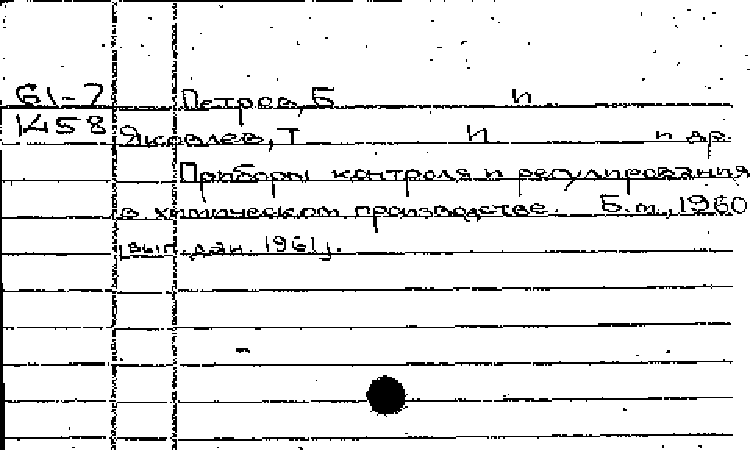 61-7 Петров, Б и
1458 Яковлев, Т и и др.
Приборы контроля и регулирования
в химическом производстве. Б.м., 1960
[вып. дан. 1961].